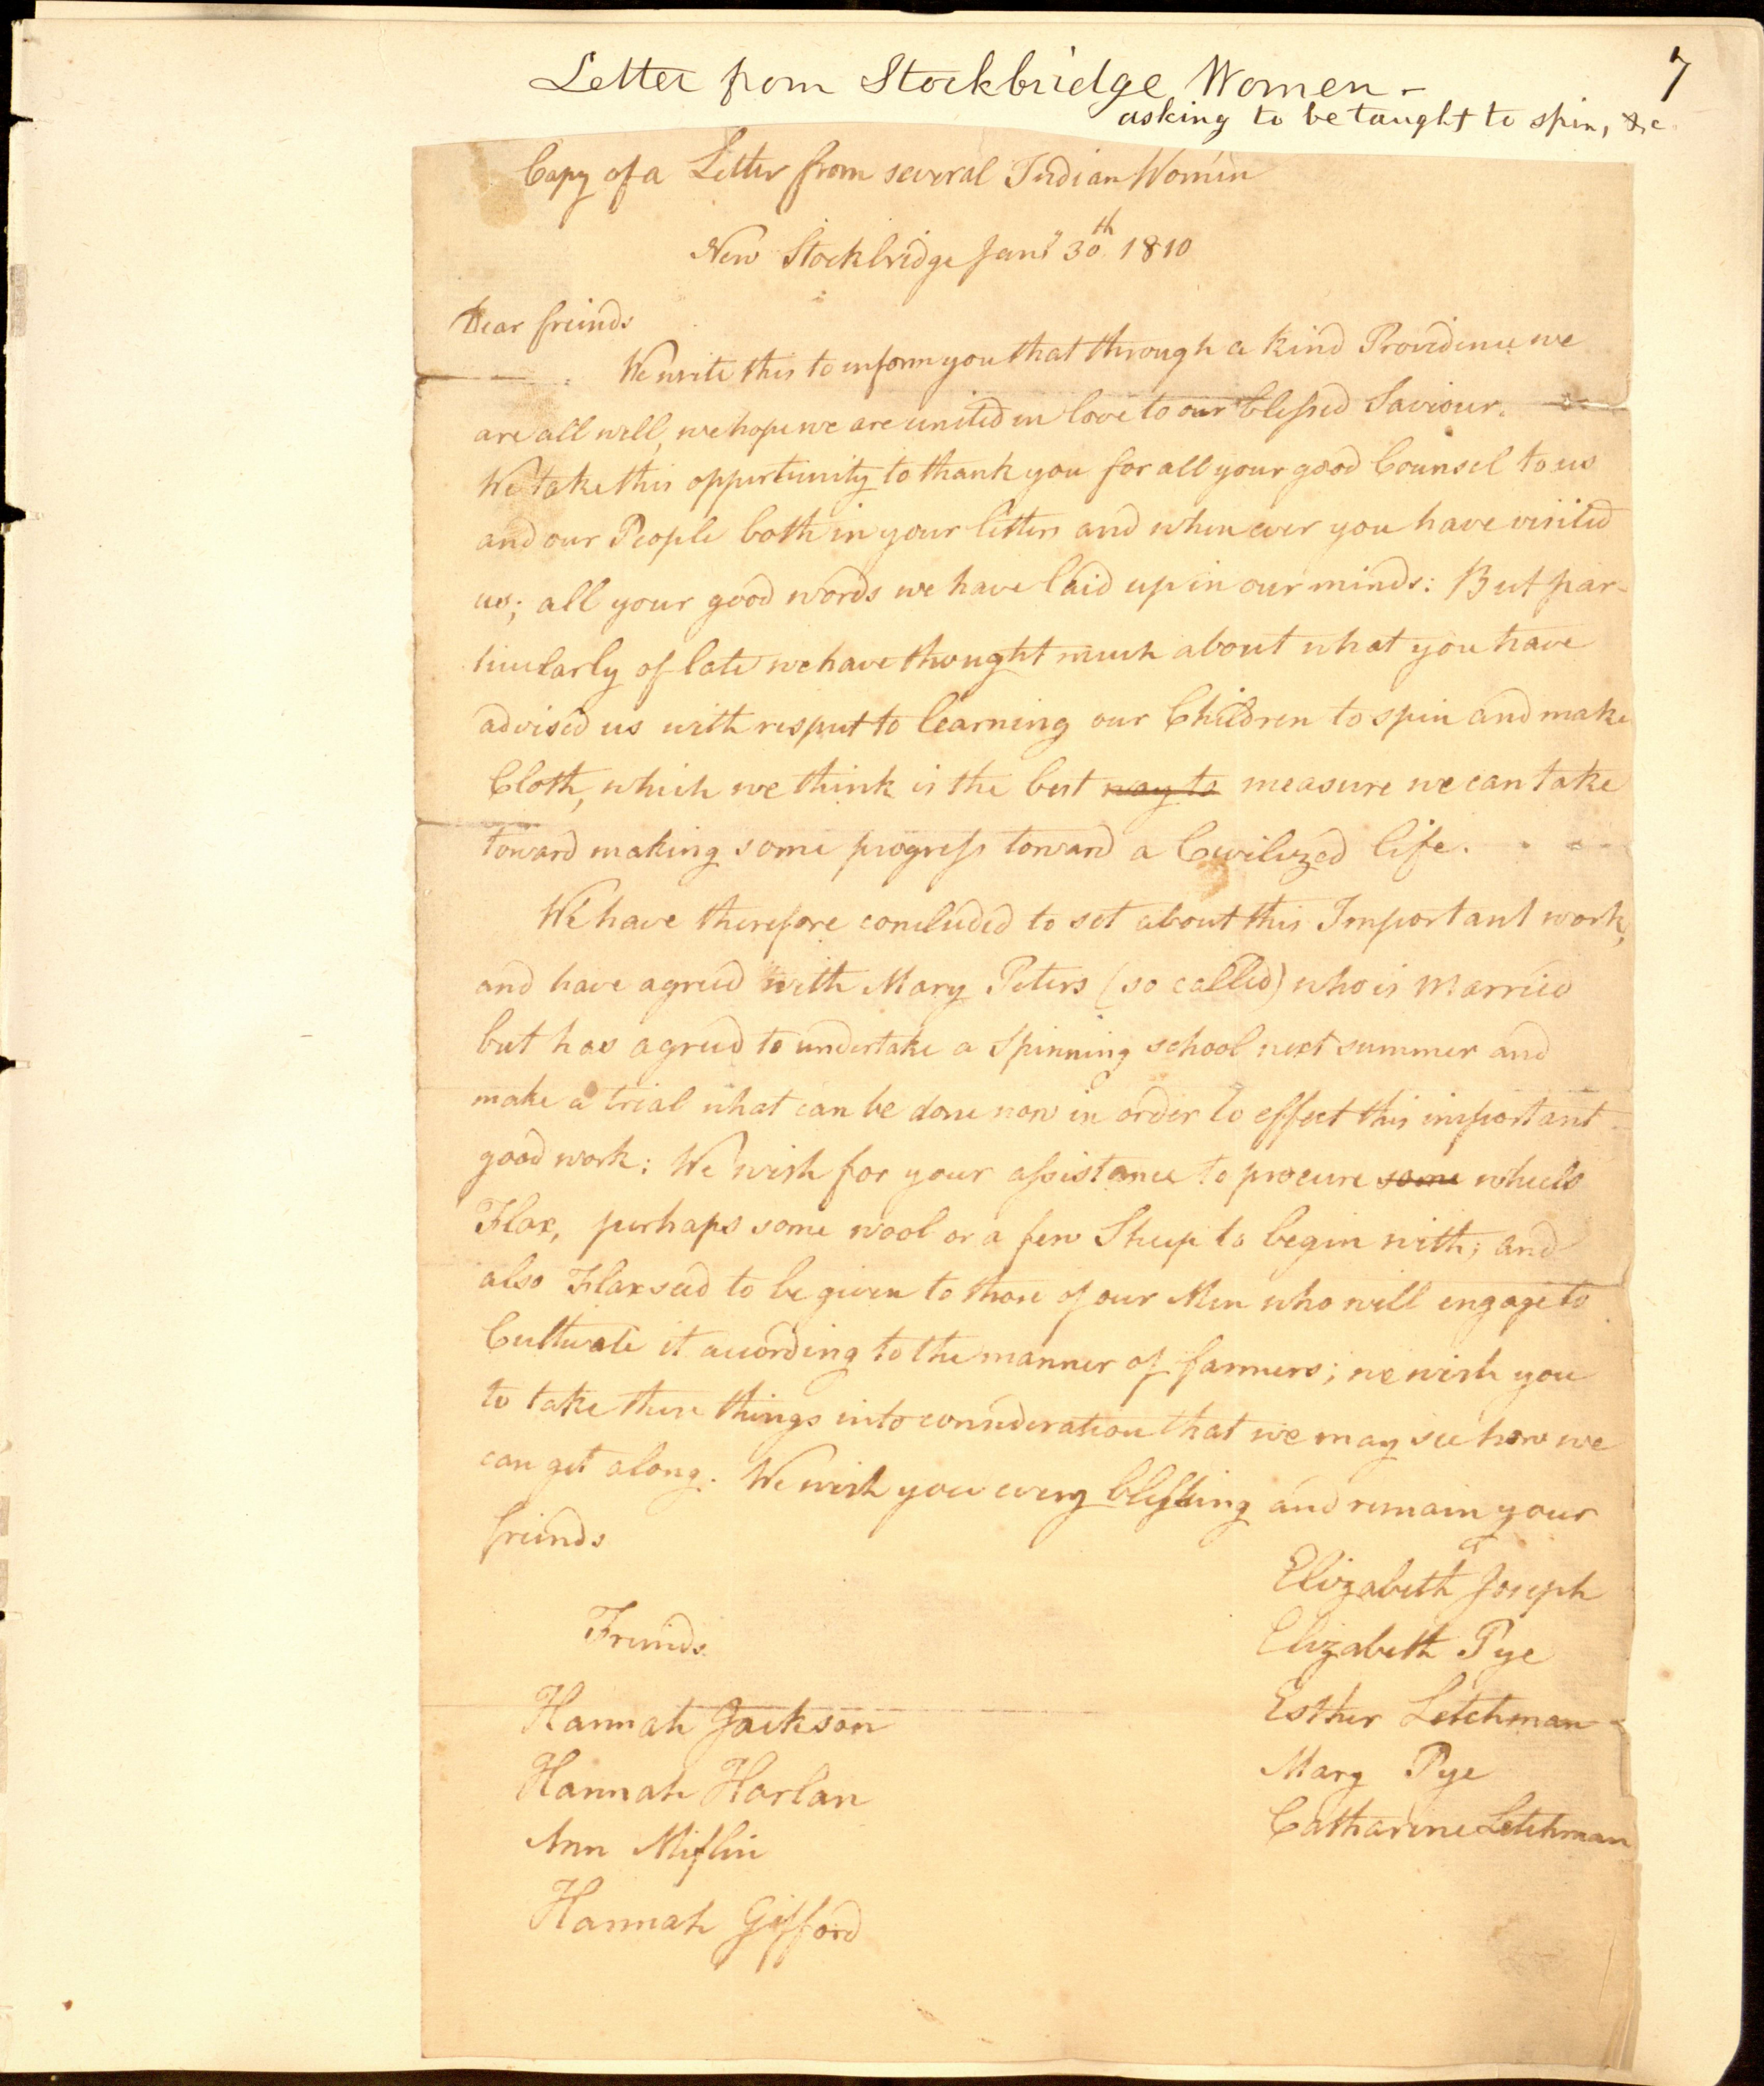 Letter from Stockbridge Women -
7
asking to be taught to spin, &c.
Copy of a Letter from several Indian Women
New Stockbridge Jany 30th 1810
Dear freinds
We write this to inform you that through a kind Providence we
are all well, we hope we are united in love to our blessed Saviour.
We take this oppertunity to thank you for all your good Counsel to us
and our People both in your letters and when ever you have visited
us; all your good words we have laid up in our minds: But par-
ticularly of late we have thought much about what you have
advised us with respect to learning our Children to spin and make
Cloth, which we think is the best way to measure we can take
toward making some progress toward a Civilized life.
We have therefore concluded to set about this Important work,
and have agreed with Mary Peters (so called) who is married
but has agreed to undertake a Spinning school next summer and
make a trial what can be done now in order to effect this important
good work: We wish for your assistance to procure some wheels
Flax, perhaps some wool or a few Sheep to begin with; and
also Flaxseed to be given to those of our Men who will engage to
Cultivate it according to the manner of farmers; we wish you
to take these things into consideration that we may see how we
can get along. We wish you every blessing and remain your
freinds
Elizabeth Joseph
Freinds
Elizabeth Pye
Hannah Jackson
Esther Letchman
Hannah Harlan
Mary Pye
Ann Miflin
Catharine Letchman
Hannah Gifford